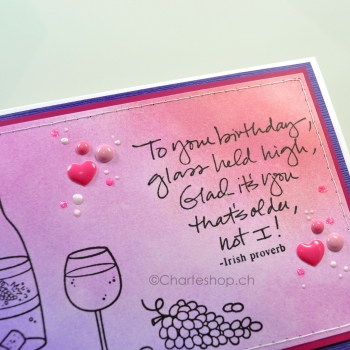 To your birthday,
glass held high,
Glad it's you
that's older,
not I!
-Irish proverb
©Charteshop.ch